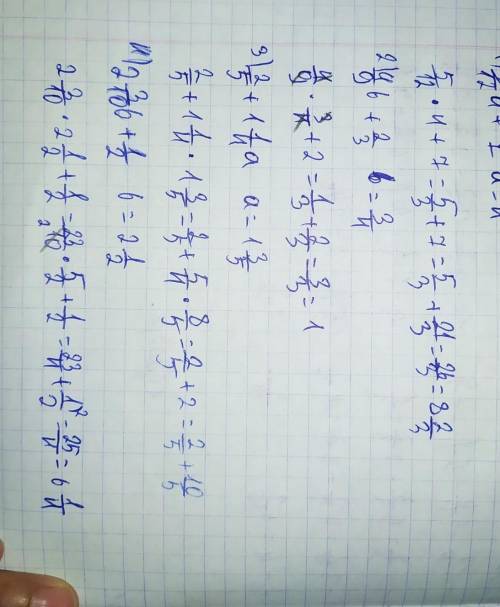 a + 7 a = 4
5/12 · 4 + 7 = 5/3 + 7 = 5/3 + 21/3 = 26/3 = 8 2/3
2) 4/9 b + 2/3 b = 3/4
4/9 · 3/4 + 2 = 1/3 + 2/3 = 3/3 = 1
3) 2/5 + 1 1/4 a a = 1 3/5
2/5 + 1 1/4 · 1 3/5 = 2/5 + 5/4 · 8/5 = 2/5 + 2 = 2/5 + 10/5
4) 2 3/10 b + 1/2 b = 2 1/2
2 3/10 · 2 1/2 + 1/2 = 23/10 2 · 5/2 + 1/2 = 23/4 + 1/2 2 = 25/4 = 6 1/4